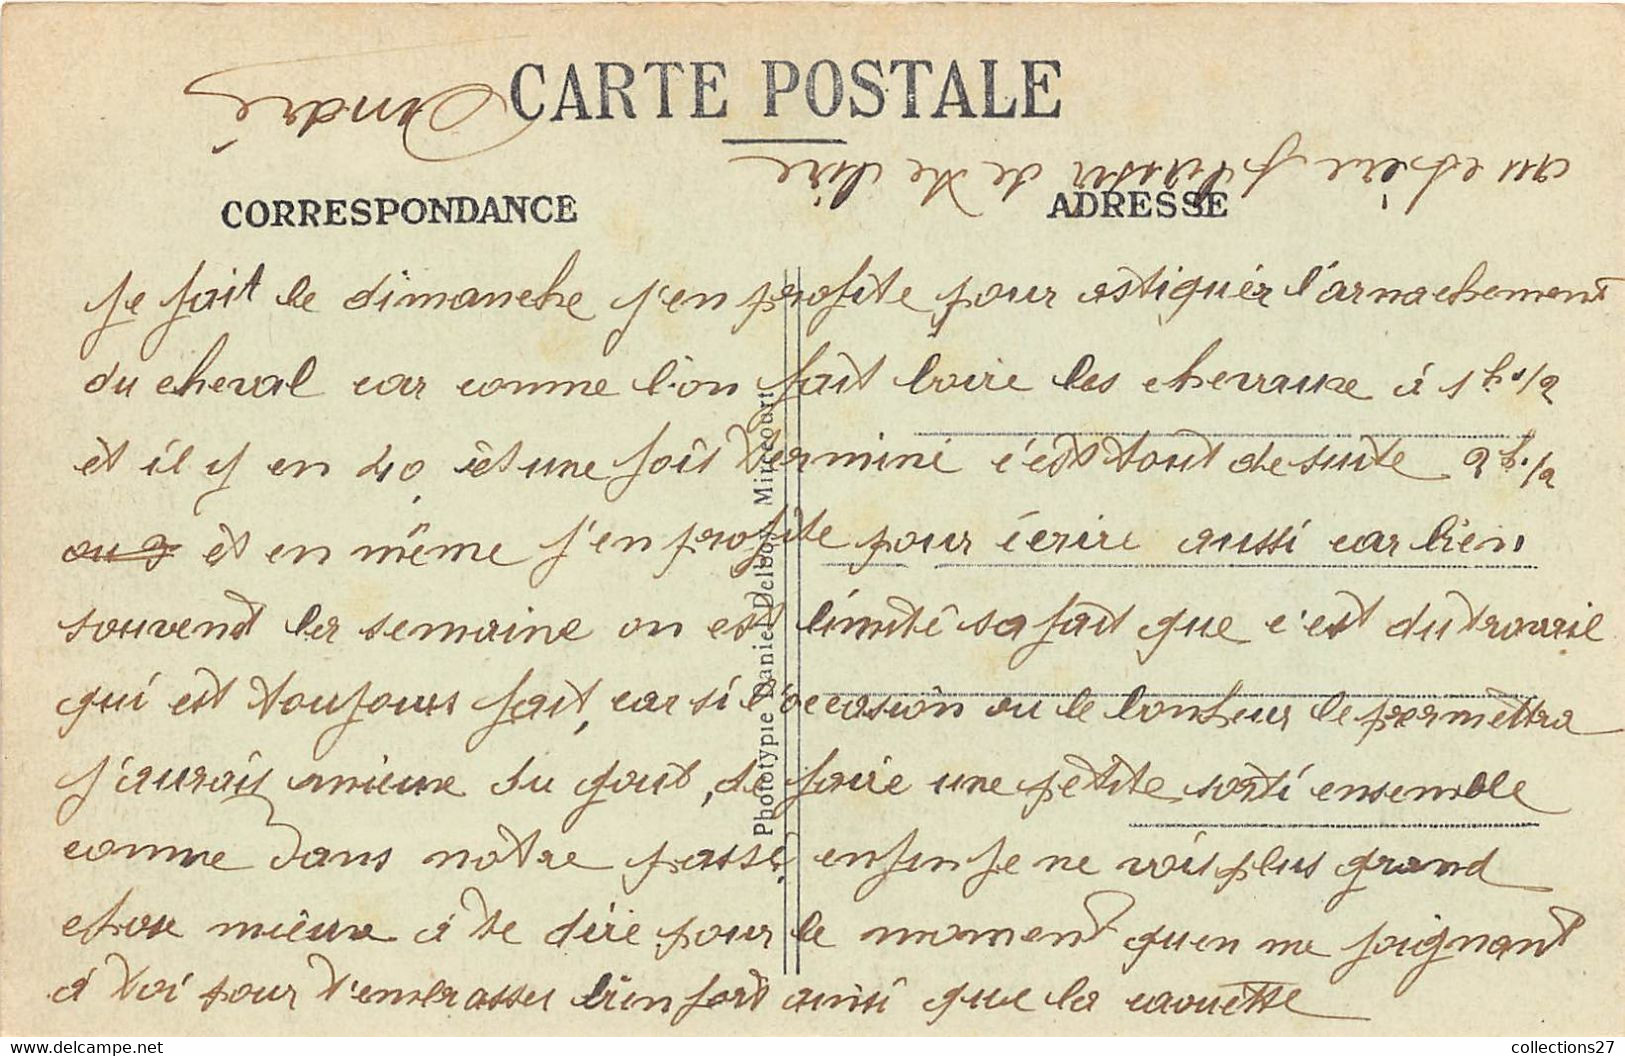 CARTE POSTALE
CORRESPONDANCE
ADRESSE
Je fait le dimanche j'en profite pour astiquér l'arnachement
du cheval car comme l'on fait boire les chevaux à 1h 1/2
et il y en 40, et une fois terminé c'est tout de suite 2h 1/2
ou 2 et en même j'en profite pour écrire aussi car bien
souvent la semaine on est limité sa fait que c'est du travail
qui est toujours fait, car si l'occasion ou le bonheur le permettra
j'aurais mieux du gout, de faire une petite sorti ensemble
comme dans notre passé, enfin je ne vois plus grand
chose mieux à te dire pour le moment qu'en me joignant
à toi pour t'embrasser bien fort ainsi que la
au plaisir de te lire
André
Phototypie Daniel Delboy, Mirecourt
collections27